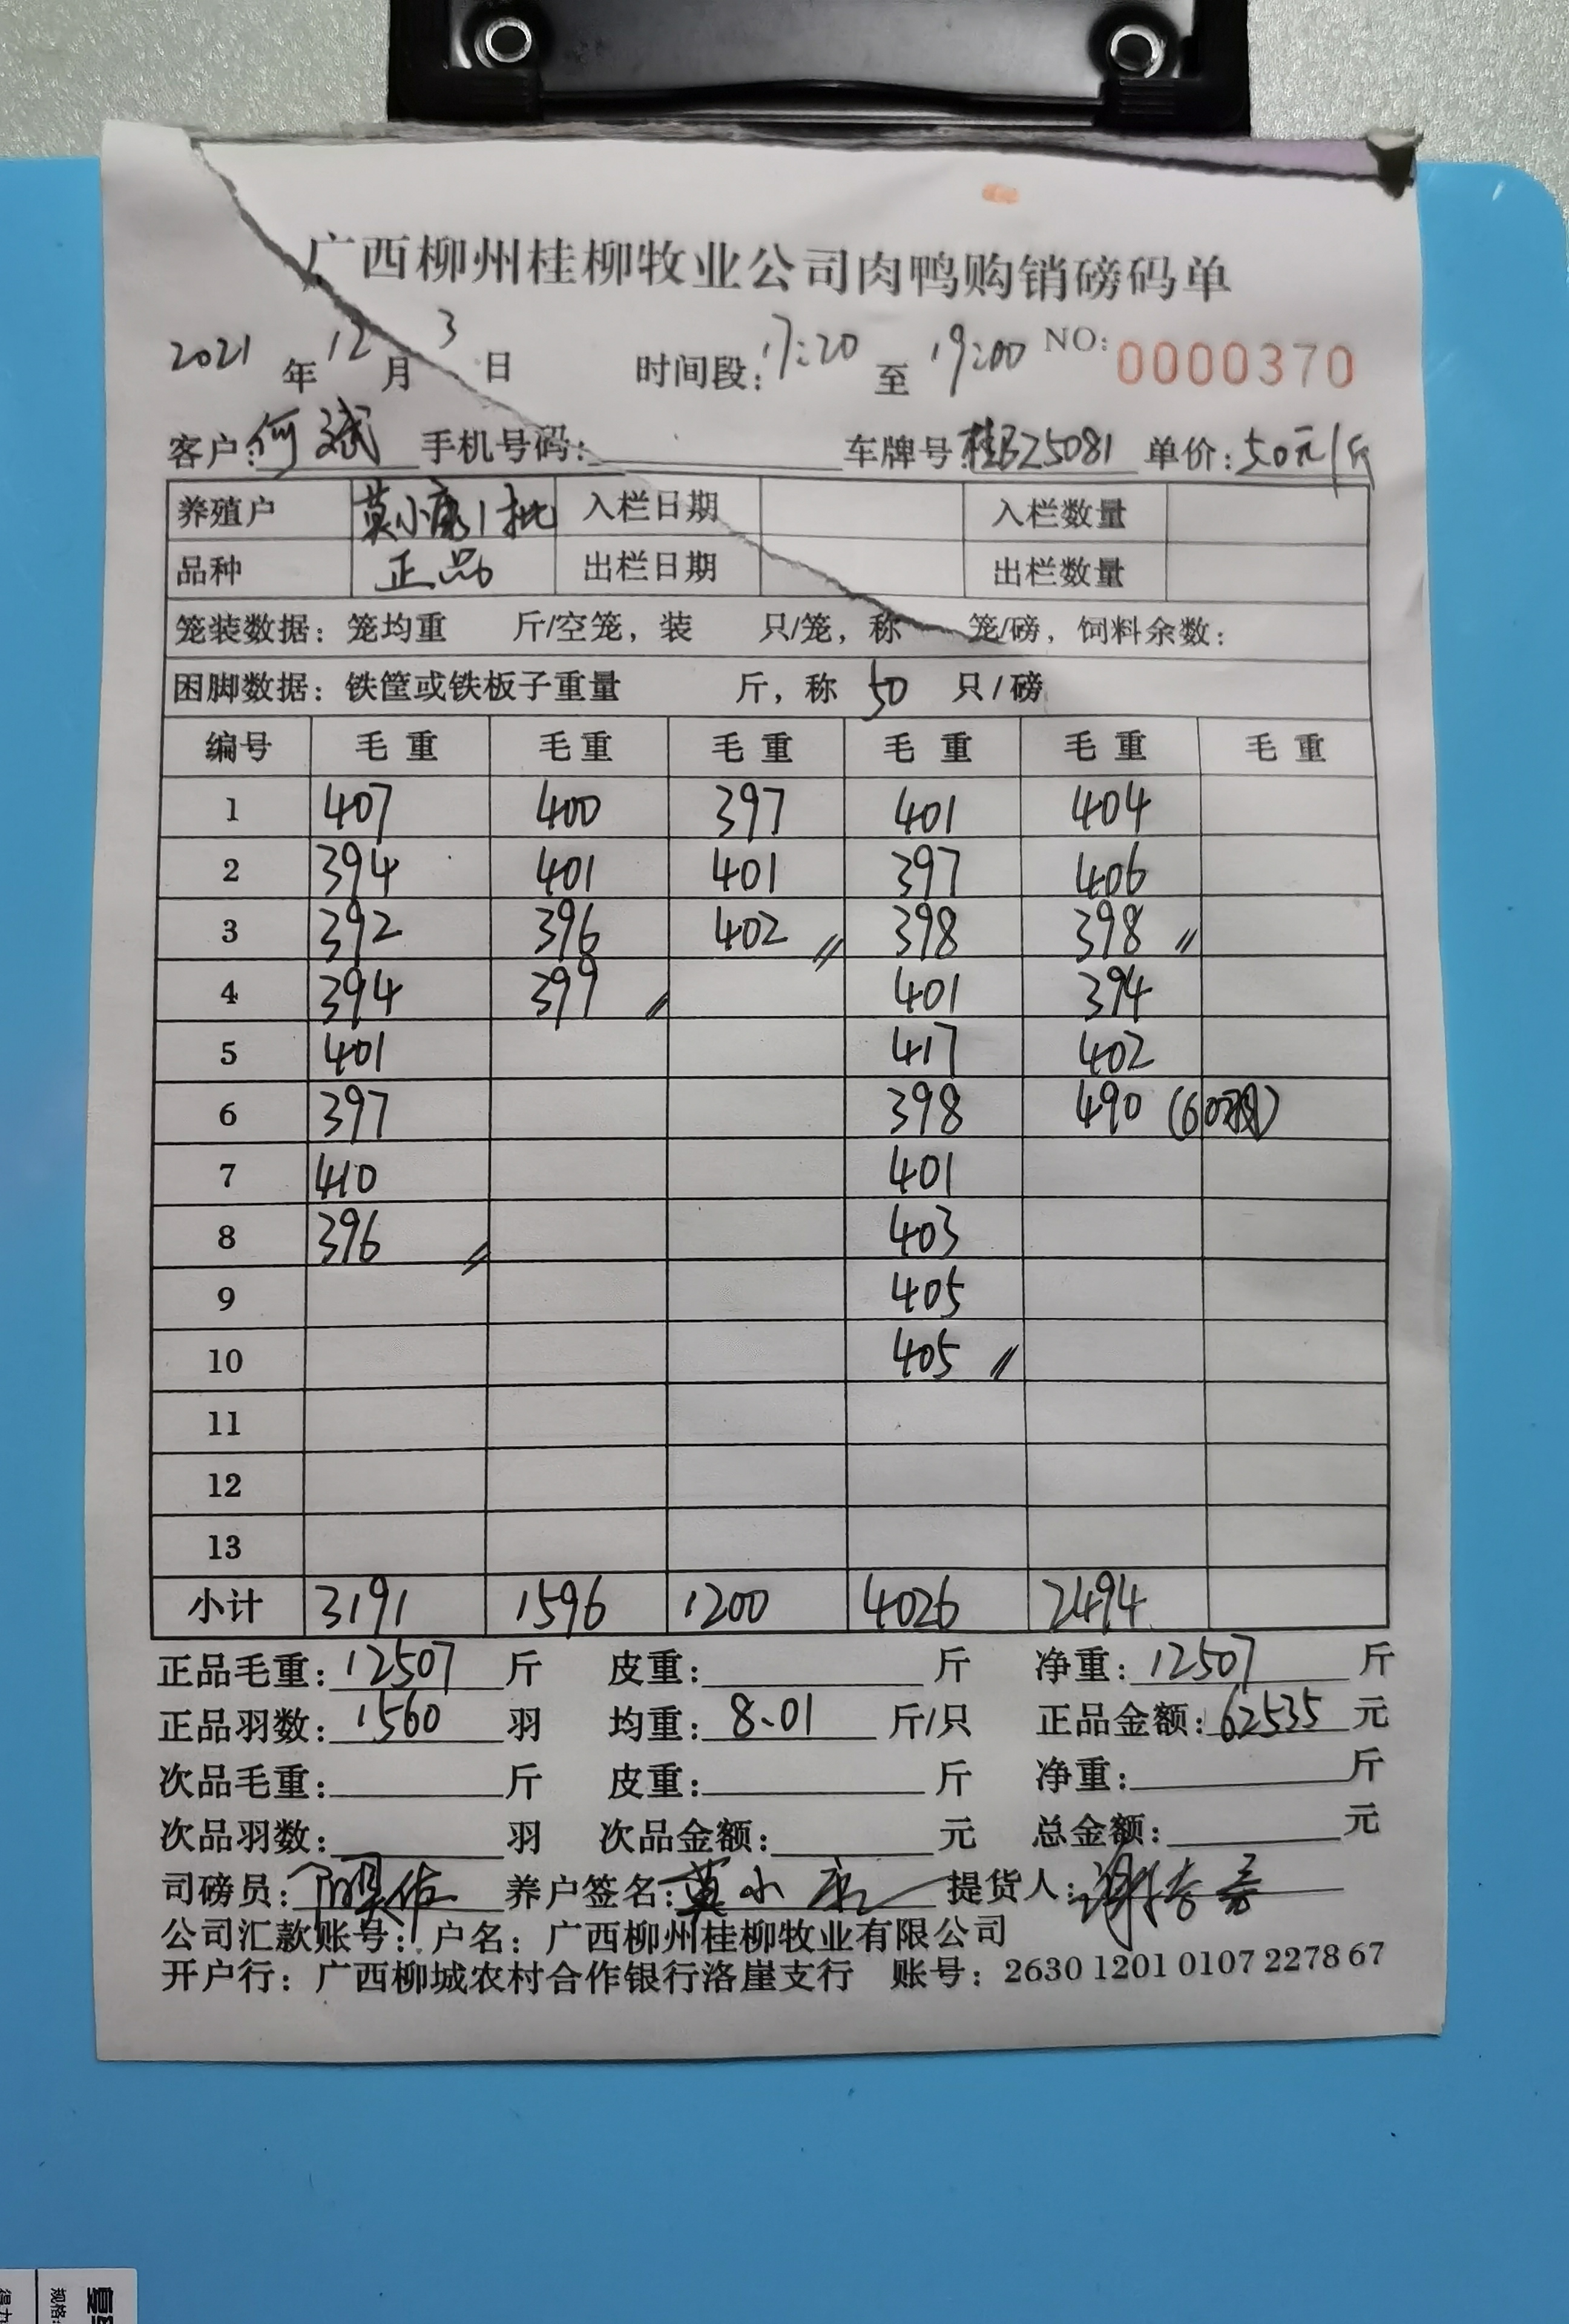 广西柳州桂柳牧业公司肉鸭购销磅码单
2021 年 12 月 3 日 时间段: 17:20 至 19:00 NO: 0000370
客户: 何斌 手机号码: 车牌号: 桂BZ5081 单价: 5.0元/斤
养殖户 莫小康1批 入栏日期 入栏数量
品种 正品 出栏日期 出栏数量
笼装数据: 笼均重 斤/空笼, 装 只/笼, 称 笼/磅, 饲料余数:
困脚数据: 铁筐或铁板子重量 斤, 称 50 只/磅
编号 毛重 毛重 毛重 毛重 毛重 毛重
1 407 400 397 401 404
2 394 401 401 397 406
3 392 396 402 // 398 398 //
4 394 399 // 401 394
5 401 417 402
6 397 398 490 (60羽)
7 410 401
8 396 // 403
9 405
10 405 //
11
12
13
小计 3191 1596 1200 4026 2494
正品毛重: 12507 斤 皮重: 斤 净重: 12507 斤
正品羽数: 1560 羽 均重: 8.01 斤/只 正品金额: 62535 元
次品毛重: 斤 皮重: 斤 净重: 斤
次品羽数: 羽 次品金额: 元 总金额: 元
司磅员: 养户签名: 莫小康 提货人:
公司汇款账号: 户名: 广西柳州桂柳牧业有限公司
开户行: 广西柳城农村合作银行洛崖支行 账号: 2630 1201 0107 2278 67